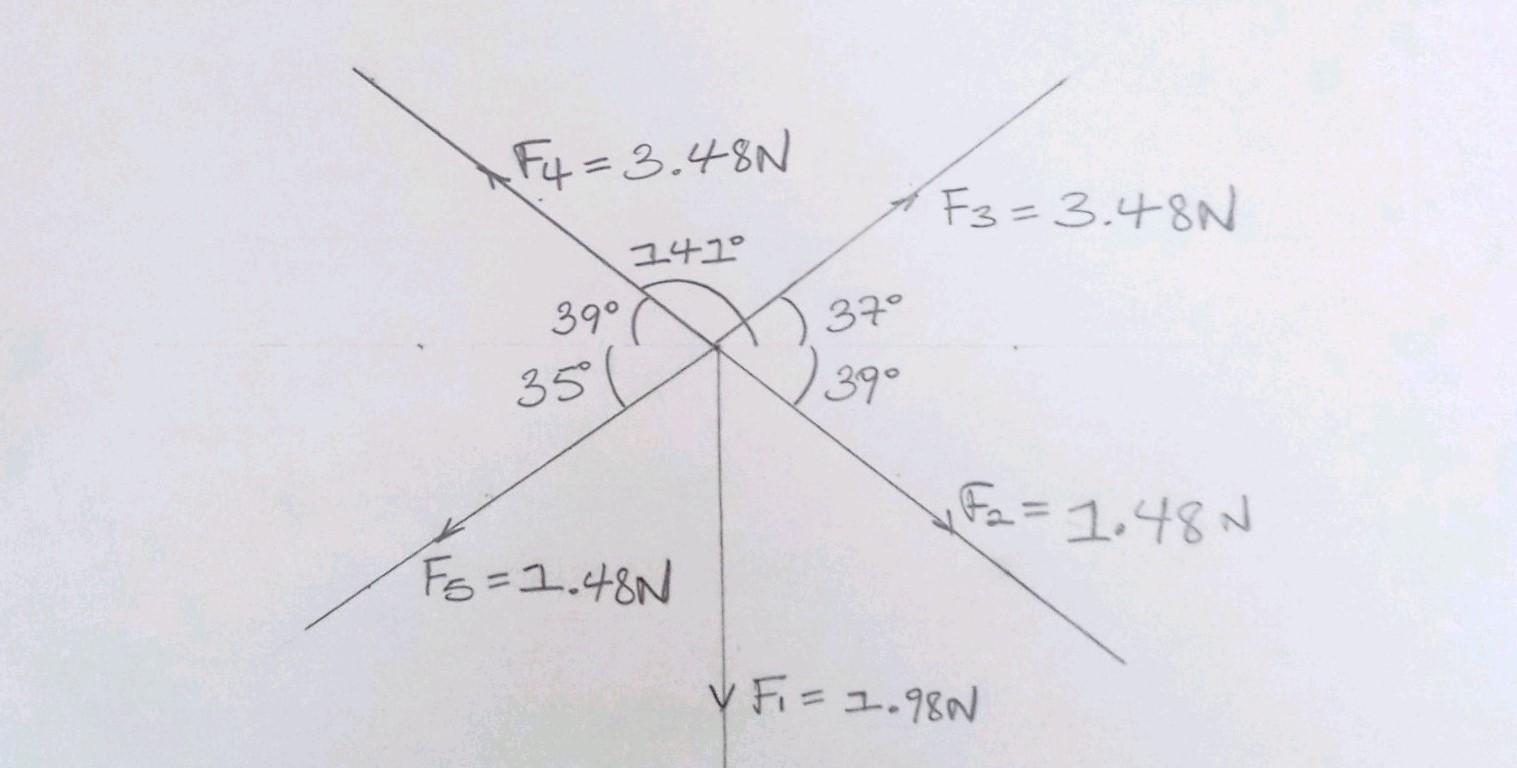 F4 = 3.48N
F3 = 3.48N
141°
39°
37°
35°
39°
F2 = 1.48N
F5 = 1.48N
F1 = 1.98N